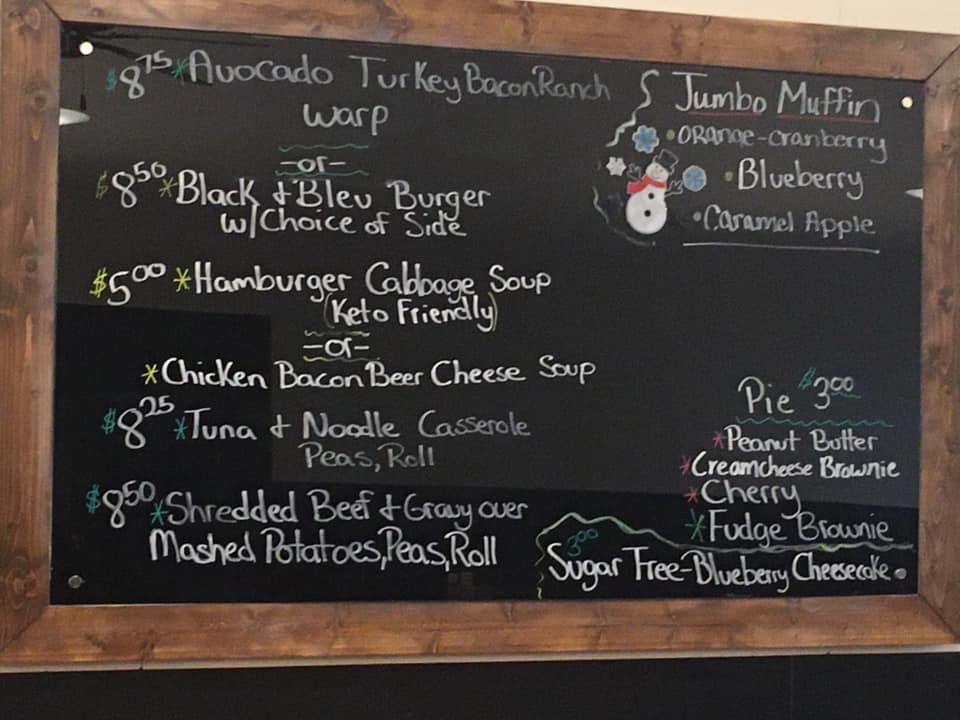 $8.75 *Avocado Turkey Bacon Ranch
warp
-or-
$8.50 *Black & Bleu Burger
w/Choice of Side
$5.00 *Hamburger Cabbage Soup
(Keto Friendly)
-or-
*Chicken Bacon Beer Cheese Soup
$8.25 *Tuna & Noodle Casserole
Peas, Roll
$8.50 *Shredded Beef & Gravy over
Mashed Potatoes, Peas, Roll
Jumbo Muffin
•Orange-cranberry
•Blueberry
•Caramel Apple
Pie $3.00
*Peanut Butter
*Creamcheese Brownie
*Cherry
*Fudge Brownie
3.00
Sugar Free-Blueberry Cheesecake